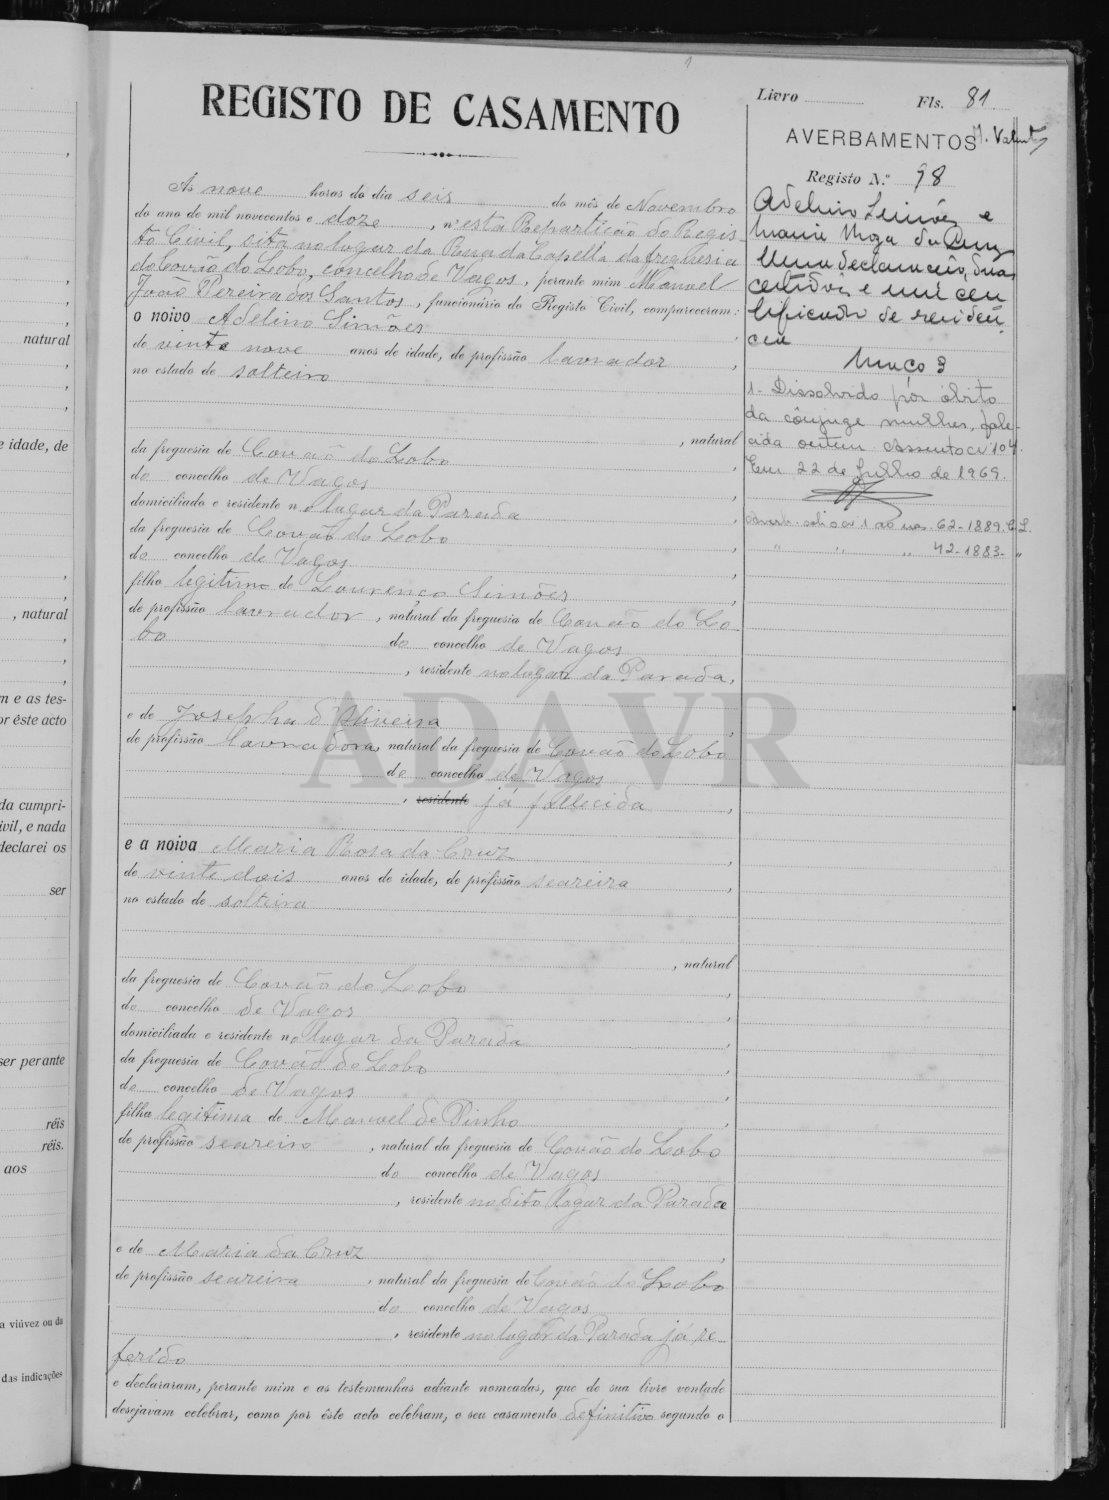 natural
e idade, de
, natural
m e as tes-
or éste acto
da cumpri-
ivil, e nada
declarei os
ser
ser perante
réis
réis.
aos
a viúvez ou da
das indicações
REGISTO DE CASAMENTO
Ás nove horas do dia seis do mês de Novembro
do ano de mil novecentos e doze, n'esta Repartição do Regis-
to Civil, sita no lugar da Rua da Capella da freguesia
do Covão do Lobo, concelho de Vagos, perante mim Manoel
João Pereira dos Santos, funcionário do Registo Civil, compareceram:
o noivo Adelino Simões
de vinte nove anos de idade, de profissão lavrador,
no estado de solteiro
, natural
da freguesia de Covão do Lobo
do concelho de Vagos,
domiciliado e residente no lugar da Parada
da freguesia de Covão do Lobo,
do concelho de Vagos,
filho legitimo de Lourenço Simões,
de profissão lavrador, natural da freguesia de Covão do Lo-
bo do concelho de Vagos
, residente no lugar da Parada,
e de Josepha d'Oliveira,
de profissão lavradora, natural da freguesia de Covão do Lobo
do concelho de Vagos
, residente já fallecida,
e a noiva Maria Rosa da Cruz,
de vinte dois anos de idade, de profissão seareira,
no estado de solteira
, natural
da freguesia de Covão do Lobo,
do concelho de Vagos,
domiciliada e residente no lugar da Parada,
da freguesia de Covão do Lobo,
do concelho de Vagos,
filha legitima de Manoel de Pinho,
de profissão seareiro, natural da freguesia do Covão do Lobo
do concelho de Vagos
, residente no dito lugar da Parada
e de Maria da Cruz,
de profissão seareira, natural da freguesia de Covão do Lobo
do concelho de Vagos
, residente no lugar da Parada já re-
ferido
e declararam, perante mim e as testemunhas adiante nomeadas, que de sua livre vontade
desejavam celebrar, como por êste acto celebram, o seu casamento definitivo segundo o
Livro Fls. 81
AVERBAMENTOS
Registo N.º 98
Adelino Simões e
Maria Rosa da Cruz
Uma declaração, duas
certidões e um cer-
tificado de residên-
cia
Maço 3
1- Dissolvido por óbito
da cônjuge mulher, fale-
cida ontem. Assento nº 104.
Em 22 de Julho de 1969.
Averb. sob o nº 1 ao nos 62-1889. C.L.
" " " 42-1883- "
ADAVR